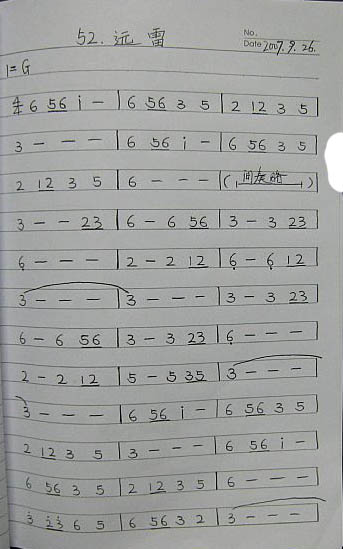 52. 远雷
No.
Date 2007.9.26.
1=G
4/4 6 56 i - | 6 56 3 5 | 2 12 3 5 |
3 - - - | 6 56 i - | 6 56 3 5 |
2 12 3 5 | 6 - - - | (间奏略) |
3 - - 23 | 6 - 6 56 | 3 - 3 23 |
6̣ - - - | 2 - 2 12 | 6̣ - 6̣ 12 |
3 - - - | 3 - - - | 3 - 3 23 |
6 - 6 56 | 3 - 3 23 | 6̣ - - - |
2 - 2 12 | 5 - 5 35 | 3 - - - |
3 - - - | 6 56 i - | 6 56 3 5 |
2 12 3 5 | 3 - - - | 6 56 i - |
6 56 3 5 | 2 12 3 5 | 6 - - - |
3̇ 2̇3̇ 6 5 | 6 56 3 2 | 3 - - - |